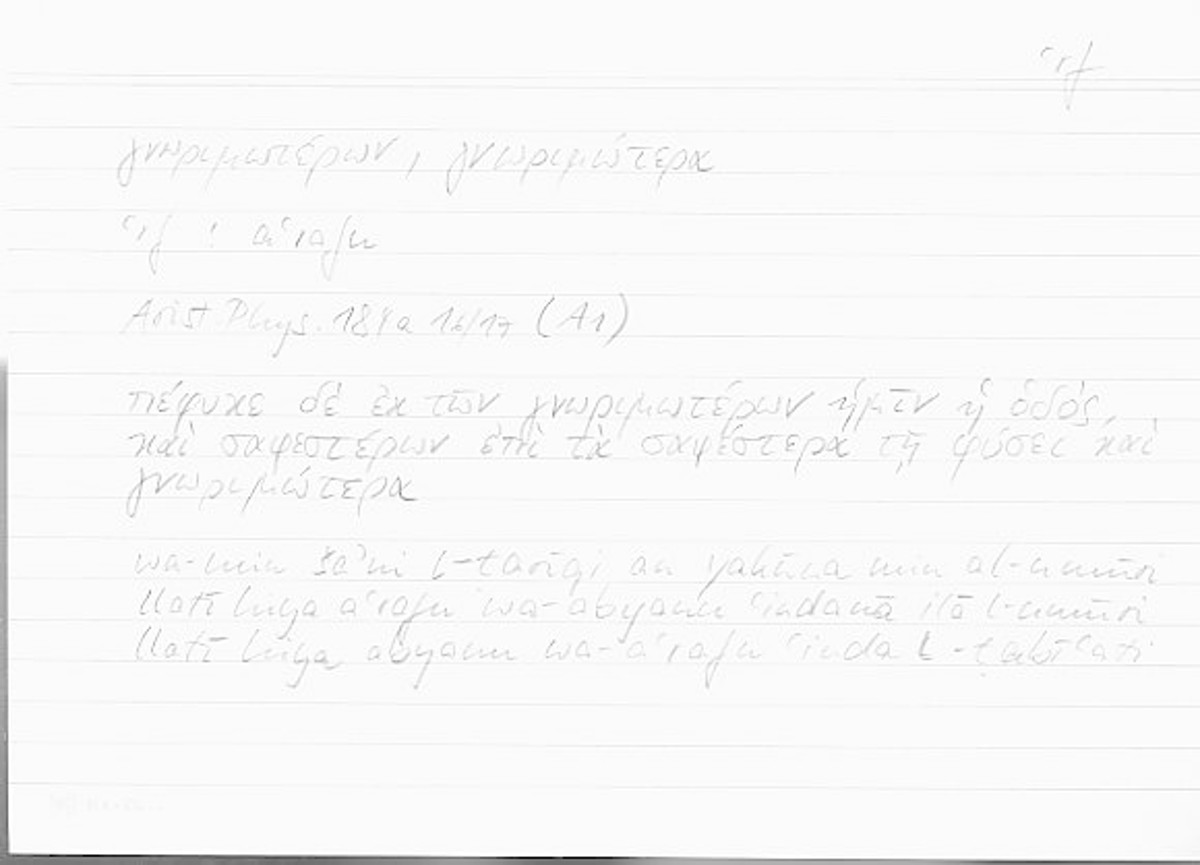 ʿrf
γνωριμωτέρων, γνωριμώτερα
ʿrf : aʿrafu
Arist Phys. 184a 16/17 (A1)
πέφυκε δὲ ἐκ τῶν γνωριμωτέρων ἡμῖν ἡ ὁδὸς
καὶ σαφεστέρων ἐπὶ τὰ σαφέστερα τῇ φύσει καὶ
γνωριμώτερα
wa-min šaʾni l-ṭarīqi an yakūna min al-umūri
llatī hiya aʿrafu wa-abyanu ʿindanā ilā l-umūri
llatī hiya abyanu wa-aʿrafu ʿinda l-ṭabīʿati